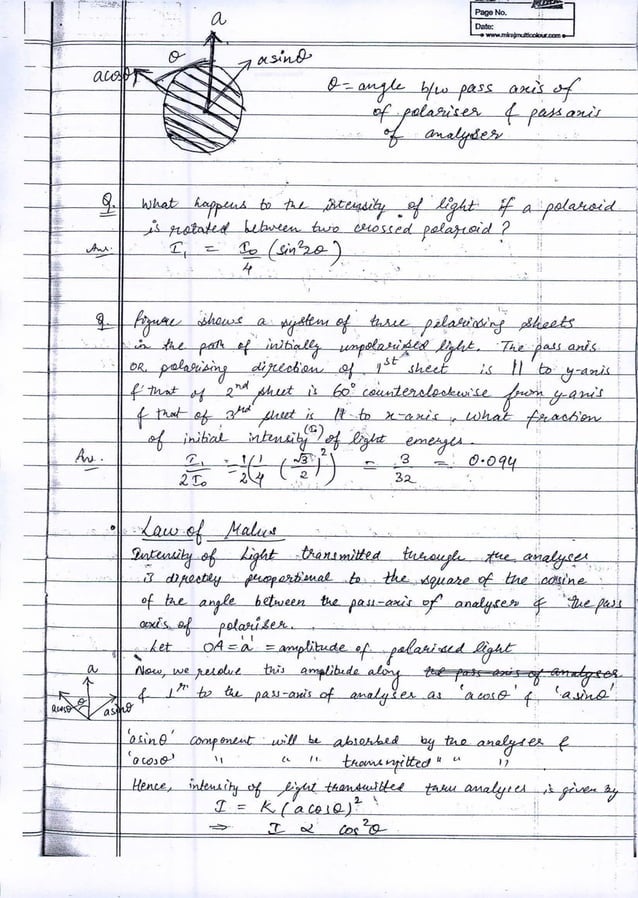 Page No.
Date:
www.mirajmulticolour.com
a
θ
a sinθ
a cosθ
θ = angle b/w pass axis of
of polariser & pass axis
of analyser
Q. What happens to the intensity of light if a polaroid
is rotated between two crossed polaroid?
Ans. I₁ = I₀/4 (sin²2θ)
Q. Figure shows a system of three polarizing sheets
in the path of initially unpolarised light. The pass axis
OR polarising direction of 1st sheet is || to y-axis
& that of 2nd sheet is 60° counterclockwise from y-axis
& that of 3rd sheet is || to x-axis, what fraction
of initial intensity (I₀) of light emerges.
Ans. I₁/2I₀ = 1/2 (1/4 (√3/2)²) = 3/32 = 0.094
• Law of Malus
Intensity of Light transmitted through the analyser
is directly proportional to the square of the cosine
of the angle between the pass-axis of analyser & the pass
axis of polariser.
Let OA = 'a' = amplitude of polarised light
Now, we resolve this amplitude along the pass axis of analyser
& ⊥r to the pass-axis of analyser as 'a cosθ' & 'a sinθ'
a
a cosθ
a sinθ
'a sinθ' component will be absorbed by the analyser &
'a cosθ' " " " transmitted " " "
Hence, intensity of light transmitted thru analyser is given by
I = K (a cosθ)²
⇒ I ∝ cos²θ